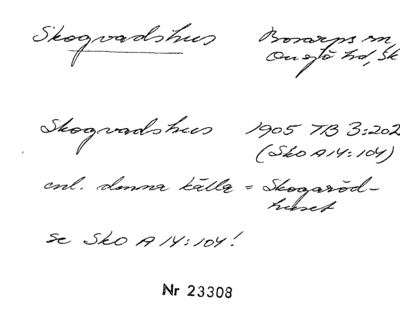 Skogvadshus Bosarps sn,
Onsjö hd, Sk
Skogvadshus 1905 TB 3:202
(SkO A 14:104)
enl. denna källa = Skogaröd-
huset
se SkO A 14:104!
Nr 23308